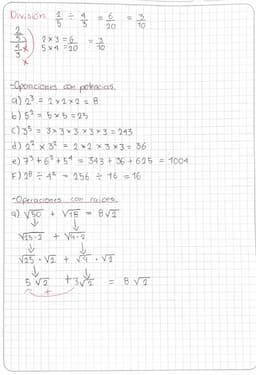 División: 2/5 ÷ 4/3 = 6/20 = 3/10
2/5 / 4/3 2x3=6 / 5x4=20 = 3/10
-Operaciones con potencias.
a) 2³ = 2x2x2 = 8
b) 5² = 5x5 = 25
c) 3⁵ = 3x3x3x3x3 = 243
d) 2² x 3² = 2x2 x 3x3 = 36
e) 7³ + 6² + 5⁴ = 343 + 36 + 625 = 1004
F) 2⁸ ÷ 4² = 256 ÷ 16 = 16
-Operaciones con raíces.
a) √50 + √18 = 8√2
√25·2 + √9·2
√25 · √2 + √9 · √2
5√2 + 3√2 = 8√2